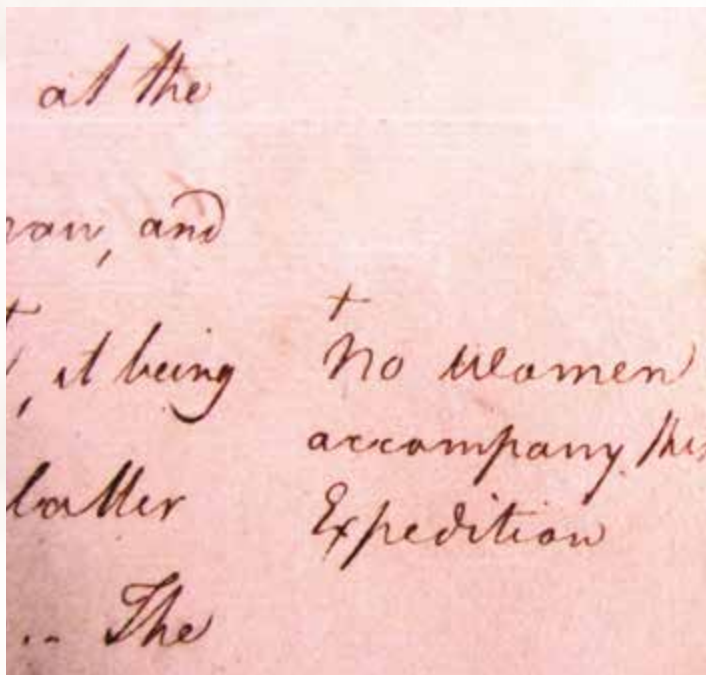 at the
and
, it being
latter
.. The
+
No Women
accompany this
Expedition